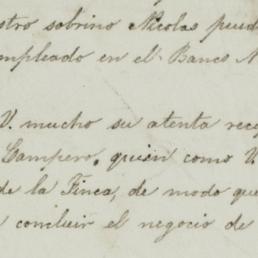 stro sobrino Nicolas pued
mpleado en el Banco N
V. mucho su atenta rec
Campero, quien como V.
de la Finca, de modo que
concluir el negocio de